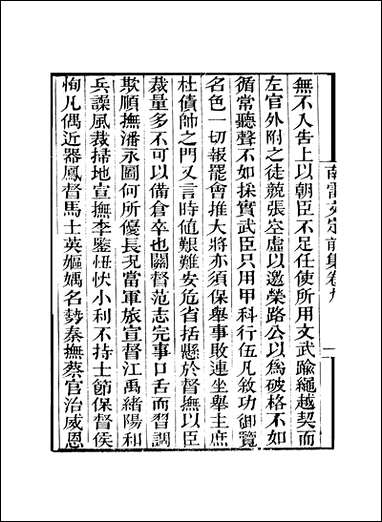 南雷文定前集卷九
一
無不人告上以朝臣不足任使所用文武踰繩越契而
左官外附之徒競張空虛以邀榮路公以為破格不如
循常聽聲不如採實武臣只用甲科行伍凡敘功御覽
名色一切報罷會推大將亦須保舉事敗連坐舉主庶
杜債師之門又言時値艱難安危省括懸於督撫以臣
裁量多不可以備倉卒也關督范志完事口舌而習調
欺順撫潘永圖何所優長况當軍旅宣督江禹緒陽和
兵譟風裁掃地宣撫李鑒忸忕小利不持士節保督侯
恂凡偶近器鳳督馬士英嫗媀名勢秦撫蔡官治威恩